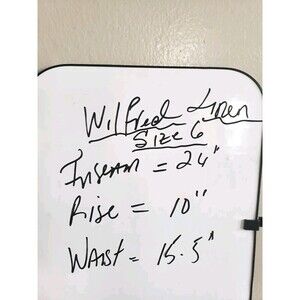 Wilfred Linen
Size 6
Inseam = 24"
Rise = 10"
Waist = 15.5"